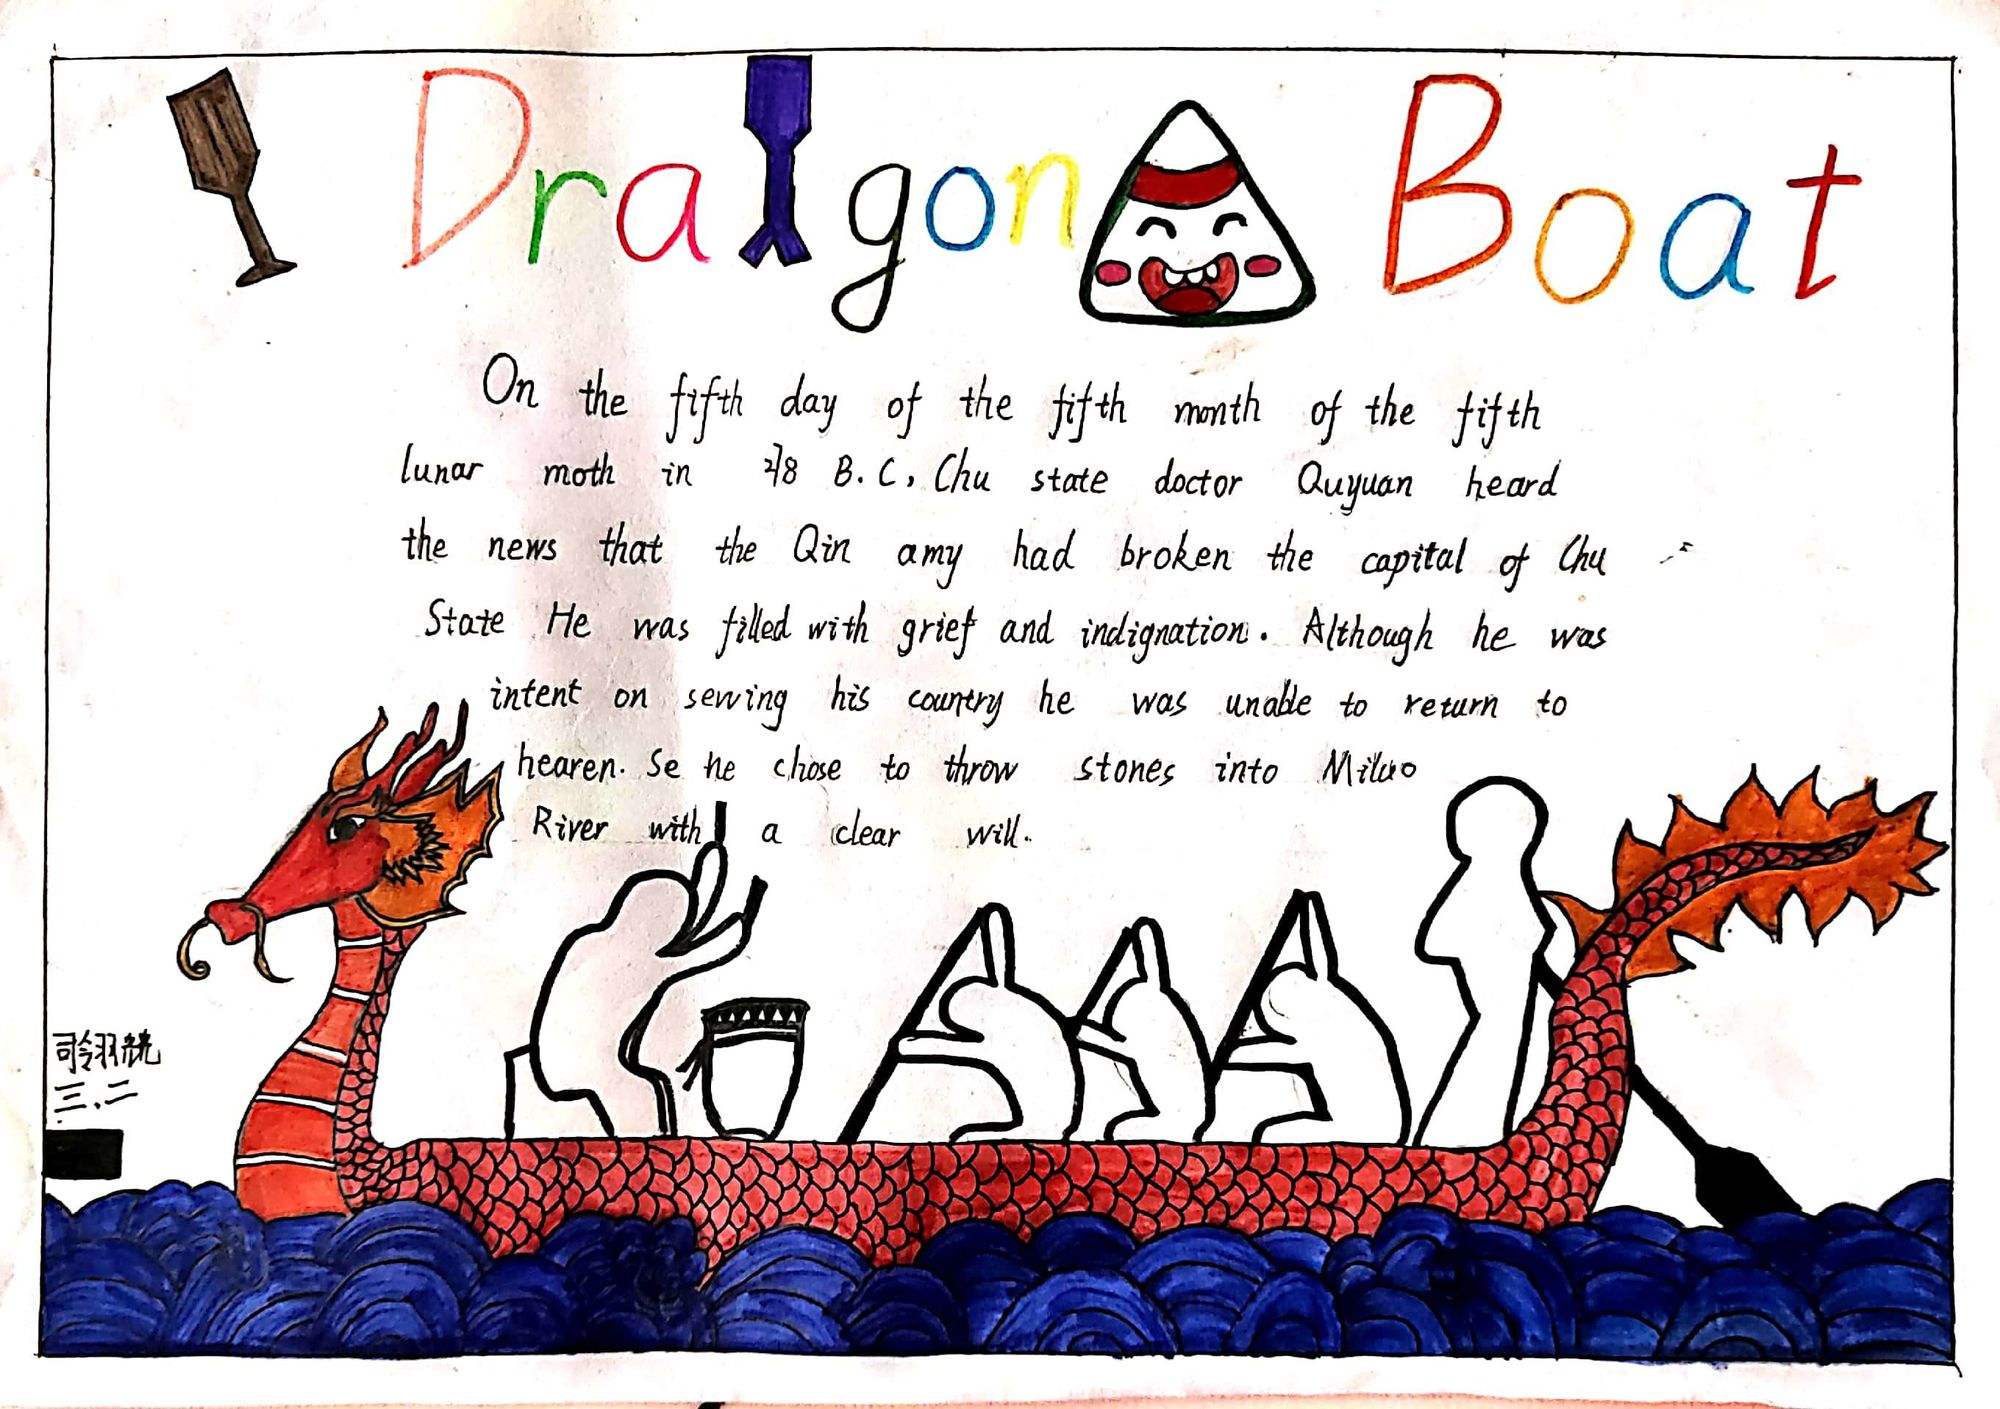 Dragon Boat
On the fifth day of the fifth month of the fifth
lunar moth in 278 B.C, Chu state doctor Quyuan heard
the news that the Qin amy had broken the capital of Chu
State He was filled with grief and indignation. Although he was
intent on serving his country he was unable to return to
hearen. Se he chose to throw stones into Miluo
River with a clear will.
三.二